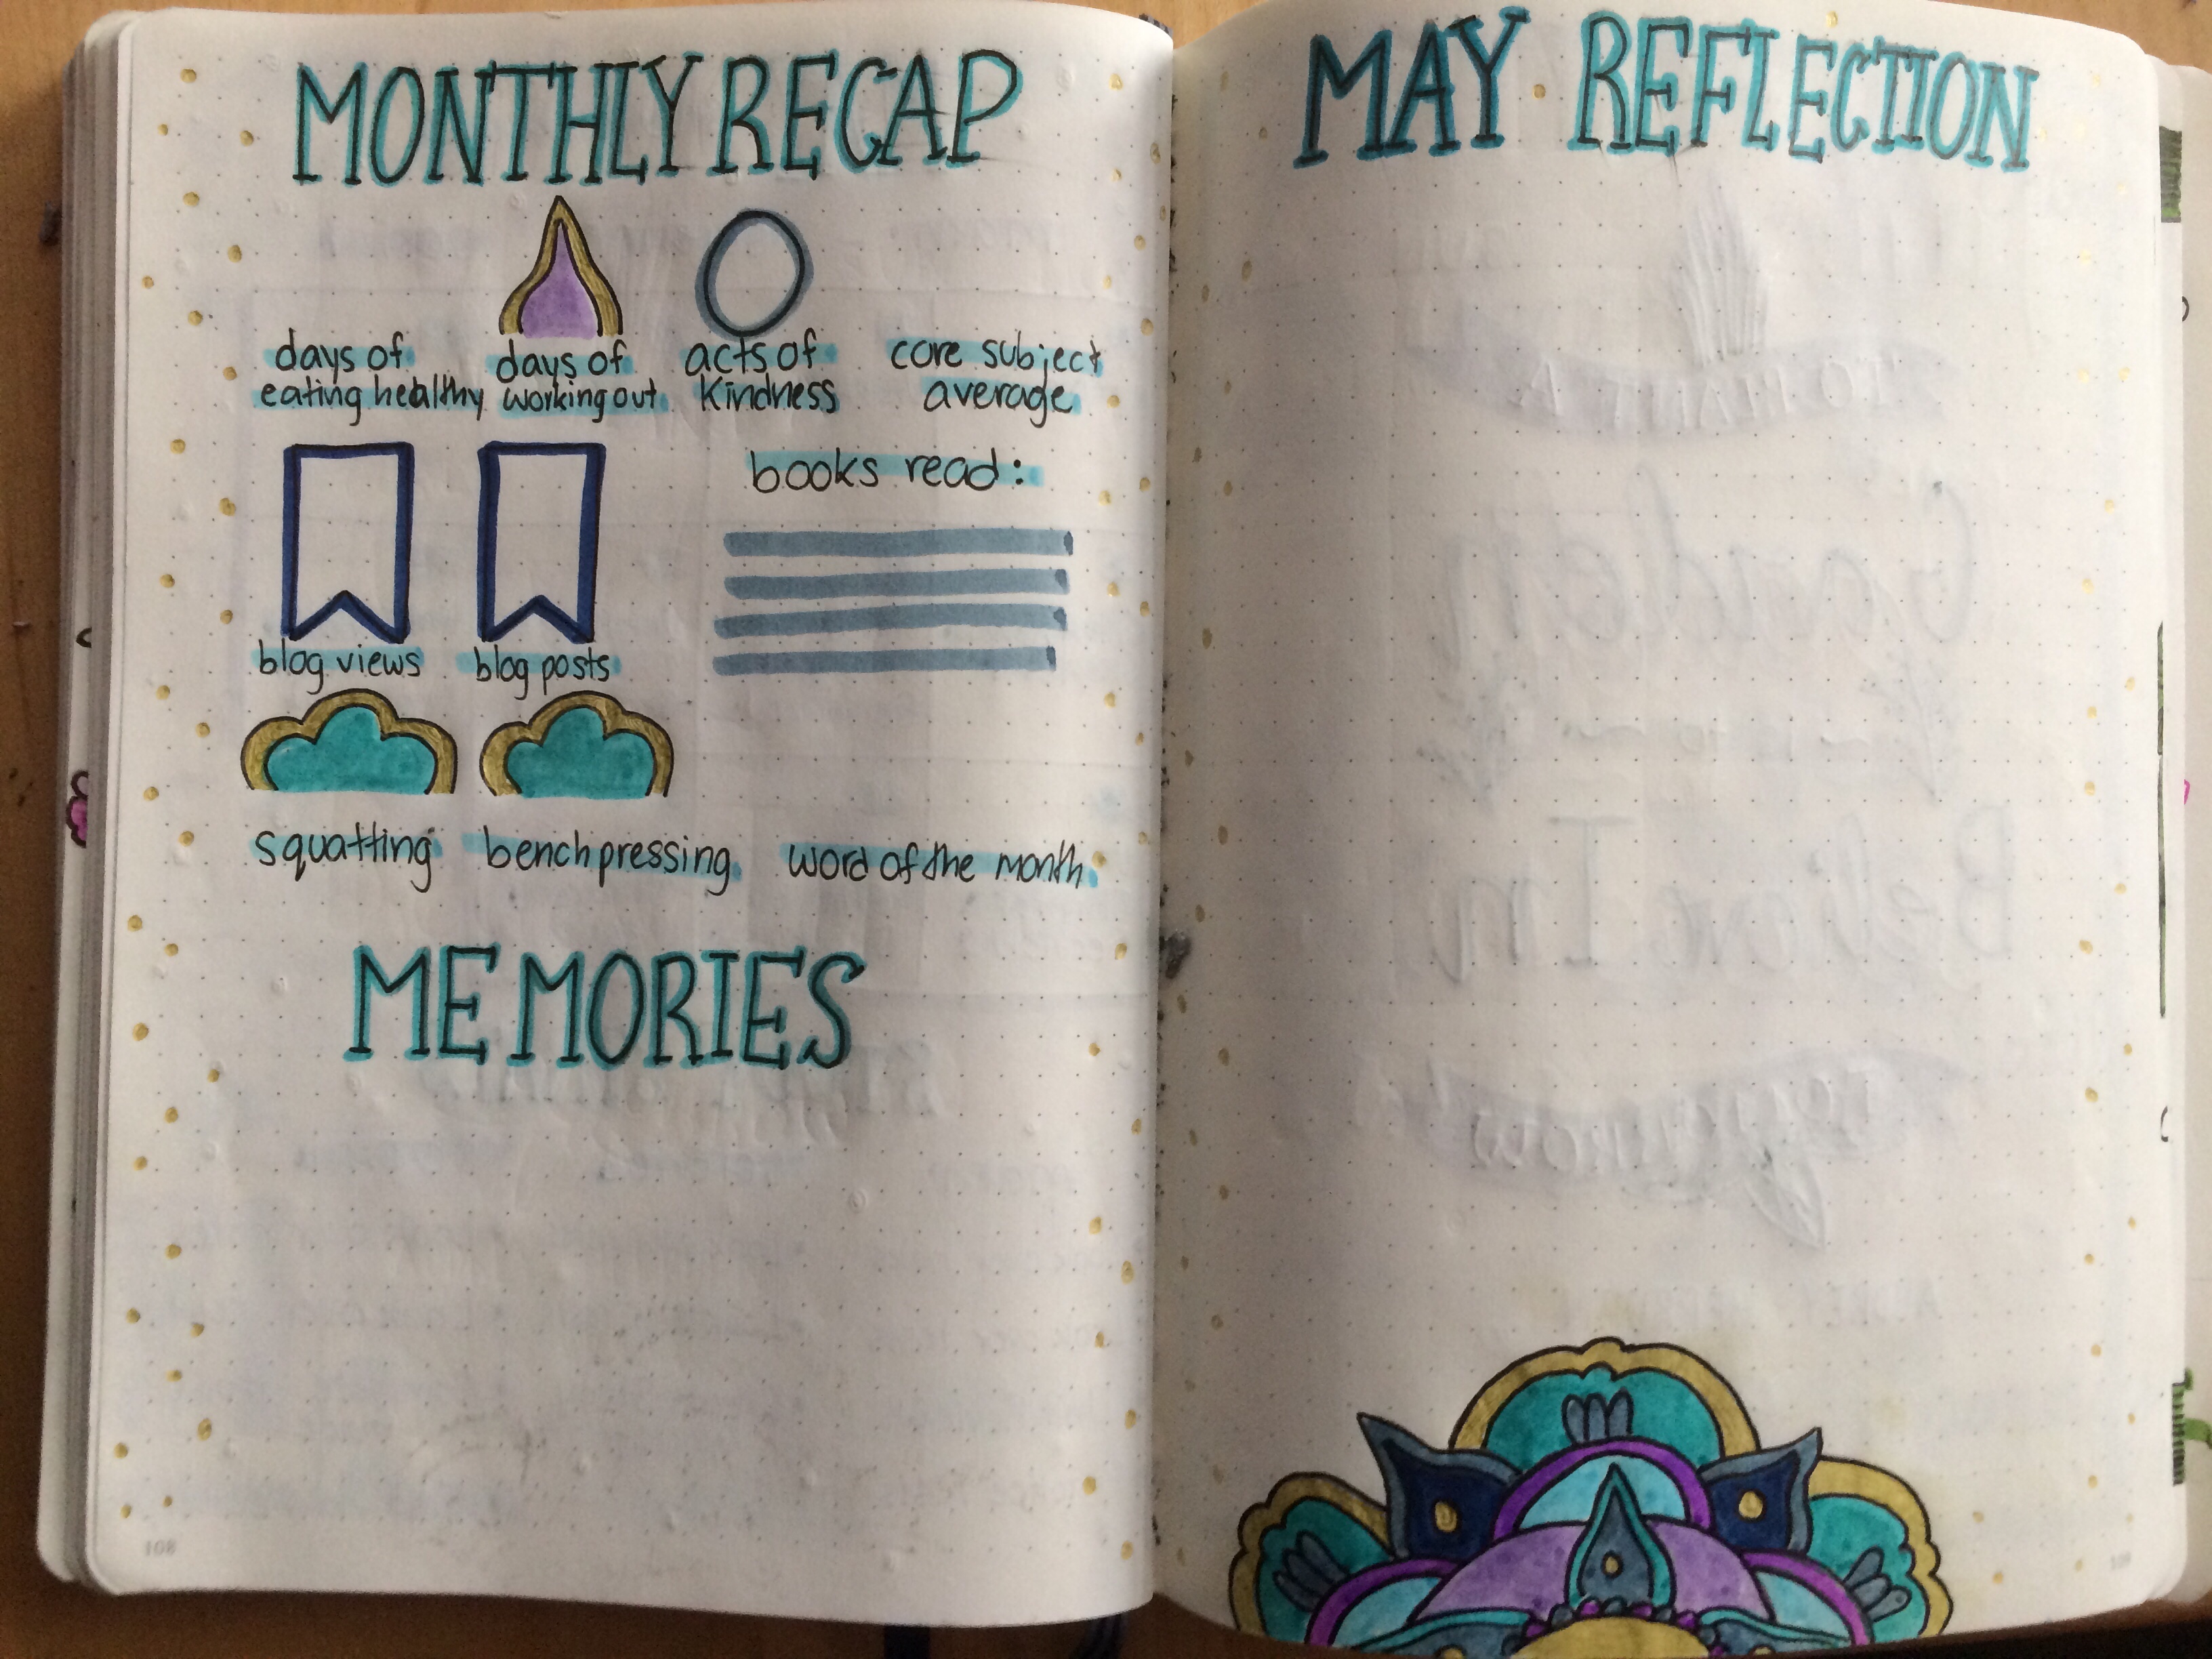 MONTHLY RECAP
days of
eating healthy
days of
working out
acts of
kindness
core subject
average
blog views
blog posts
books read:
squatting
benchpressing
word of the month
MEMORIES
108
MAY REFLECTION
TO PLANT A
Garden
is to
Believe In
TOMORROW